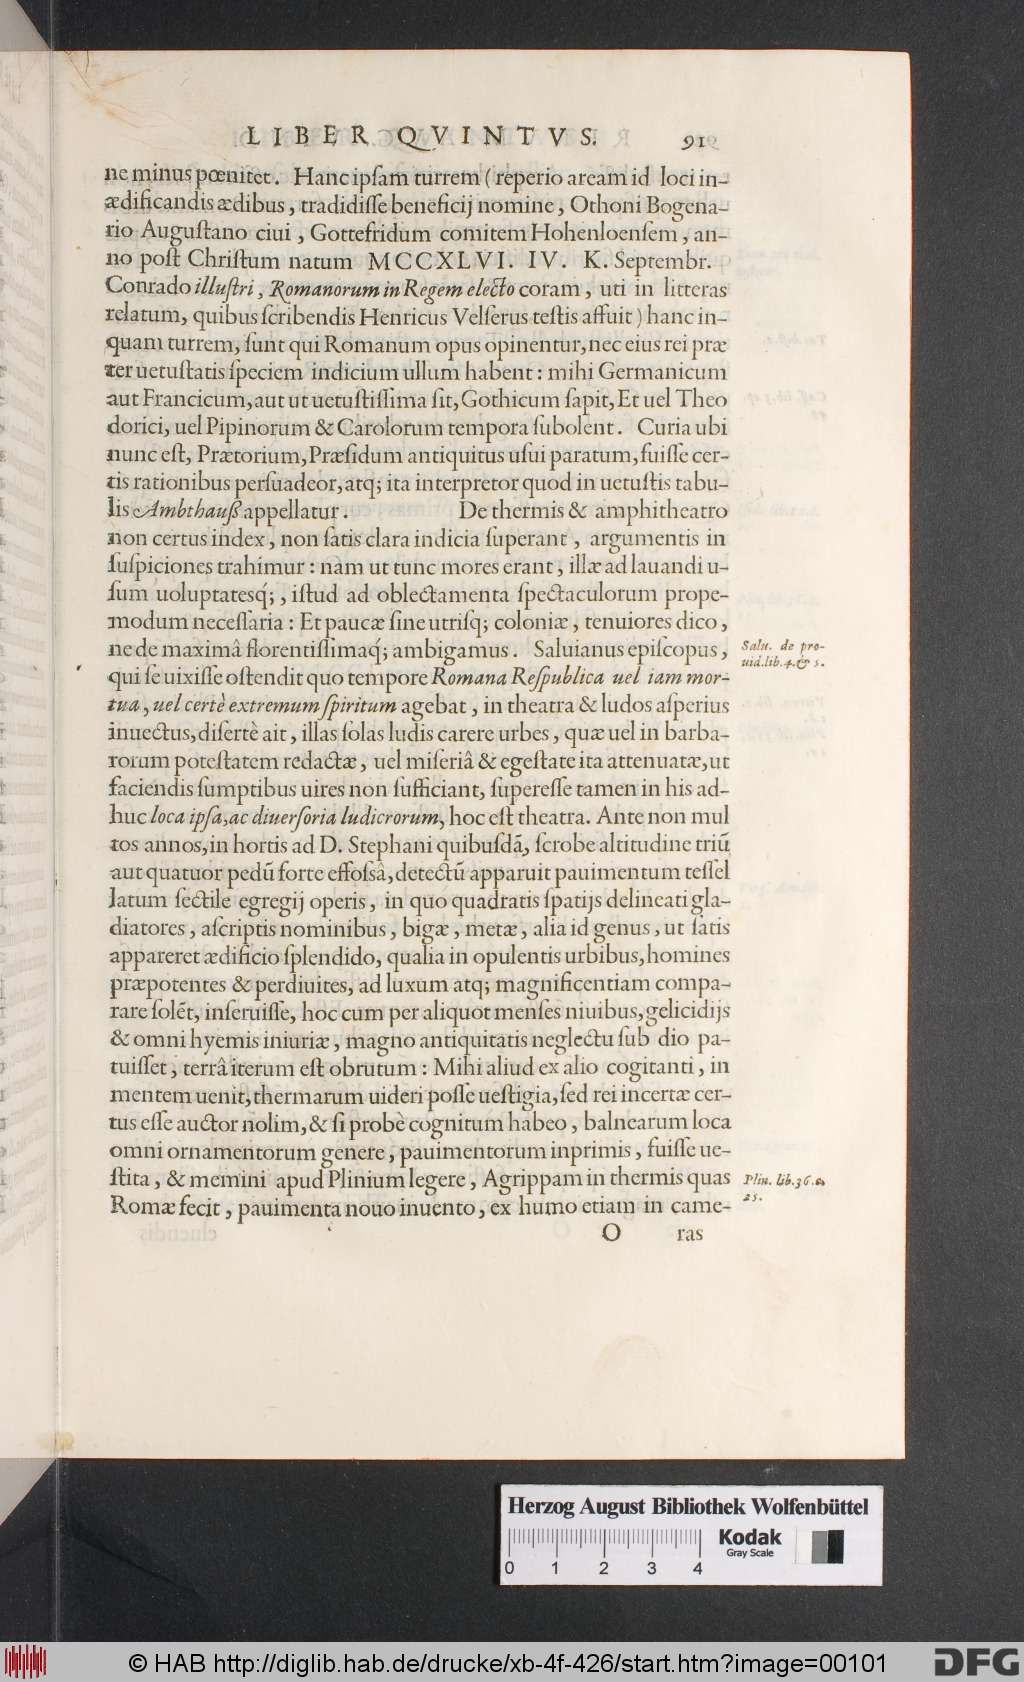 LIBER QVINTVS. 91
ne minus pœnitet. Hanc ipſam turrem (reperio aream id loci in-
ædificandis ædibus, tradidiſſe beneficij nomine, Othoni Bogena-
rio Auguſtano ciui, Gottefridum comitem Hohenloenſem, an-
no poſt Chriſtum natum MCCXLVI. IV. K. Septembr.
Conrado illuſtri, Romanorum in Regem electo coram, uti in litteras
relatum, quibus ſcribendis Henricus Velſerus teſtis affuit) hanc in-
quam turrem, ſunt qui Romanum opus opinentur, nec eius rei præ
ter uetuſtatis ſpeciem indicium ullum habent: mihi Germanicum
aut Francicum, aut ut uetuſtiſſima ſit, Gothicum ſapit, Et uel Theo
dorici, uel Pipinorum & Carolorum tempora ſubolent. Curia ubi
nunc eſt, Prætorium, Præſidum antiquitus uſui paratum, fuiſſe cer-
tis rationibus perſuadeor, atq; ita interpretor quod in uetuſtis tabu-
lis Ambthauß appellatur. De thermis & amphitheatro
non certus index, non ſatis clara indicia ſuperant, argumentis in
ſuſpiciones trahimur: nam ut tunc mores erant, illæ ad lauandi u-
ſum uoluptatesq́;, iſtud ad oblectamenta ſpectaculorum prope-
modum neceſſaria: Et paucæ ſine utriſq; coloniæ, tenuiores dico,
ne de maximâ florentiſſimaq́; ambigamus. Saluianus epiſcopus,
qui ſe uixiſſe oſtendit quo tempore Romana Reſpublica uel iam mor-
tua, uel certè extremum ſpiritum agebat, in theatra & ludos aſperius
inuectus, diſertè ait, illas ſolas ludis carere urbes, quæ uel in barba-
rorum poteſtatem redactæ, uel miſeriâ & egeſtate ita attenuatæ, ut
faciendis ſumptibus uires non ſufficiant, ſupereſſe tamen in his ad-
huc loca ipſa, ac diuerſoria ludicrorum, hoc eſt theatra. Ante non mul
tos annos, in hortis ad D. Stephani quibuſdã, ſcrobe altitudine triũ
aut quatuor pedũ forte effoſsâ, detectũ apparuit pauimentum teſſel
latum ſectile egregij operis, in quo quadratis ſpatijs delineati gla-
diatores, aſcriptis nominibus, bigæ, metæ, alia id genus, ut ſatis
appareret ædificio ſplendido, qualia in opulentis urbibus, homines
præpotentes & perdiuites, ad luxum atq; magnificentiam compa-
rare ſolẽt, inſeruiſſe, hoc cum per aliquot menſes niuibus, gelicidijs
& omni hyemis iniuriæ, magno antiquitatis neglectu ſub dio pa-
tuiſſet, terrâ iterum eſt obrutum: Mihi aliud ex alio cogitanti, in
mentem uenit, thermarum uideri poſſe ueſtigia, ſed rei incertæ cer-
tus eſſe auctor nolim, & ſi probè cognitum habeo, balnearum loca
omni ornamentorum genere, pauimentorum inprimis, fuiſſe ue-
ſtita, & memini apud Plinium legere, Agrippam in thermis quas
Romæ fecit, pauimenta nouo inuento, ex humo etiam in came-
O ras
Salu. de pro-
uid. lib. 4. & 5.
Plin. lib. 36. c.
25.
Herzog August Bibliothek Wolfenbüttel
0 1 2 3 4
Kodak
Gray Scale
© HAB http://diglib.hab.de/drucke/xb-4f-426/start.htm?image=00101
DFG